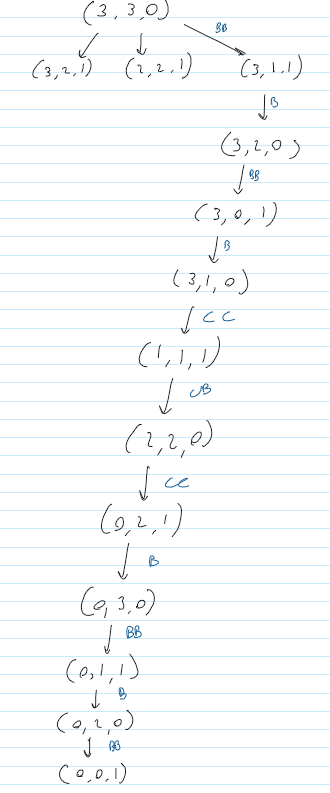 (3, 3, 0)
BB
(3, 2, 1) (2, 2, 1) (3, 1, 1)
B
(3, 2, 0)
BB
(3, 0, 1)
B
(3, 1, 0)
CC
(1, 1, 1)
CB
(2, 2, 0)
CC
(0, 2, 1)
B
(0, 3, 0)
BB
(0, 1, 1)
B
(0, 2, 0)
BB
(0, 0, 1)